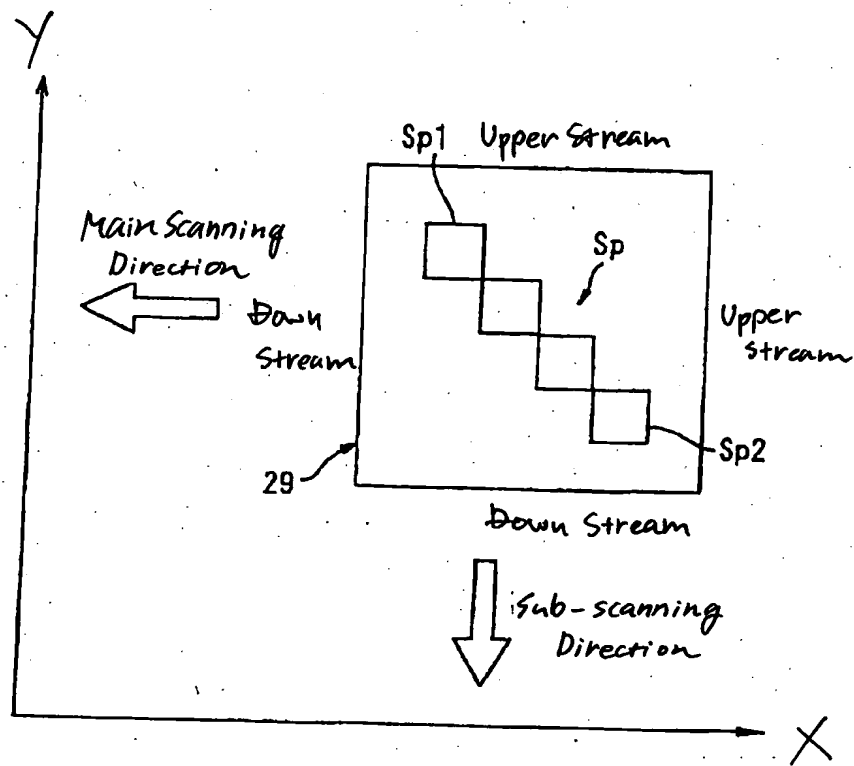 Y
Sp1 Upper Stream
Main Scanning
Direction
Sp
Down
Stream
Upper
Stream
Sp2
29
Down Stream
Sub-scanning
Direction
X